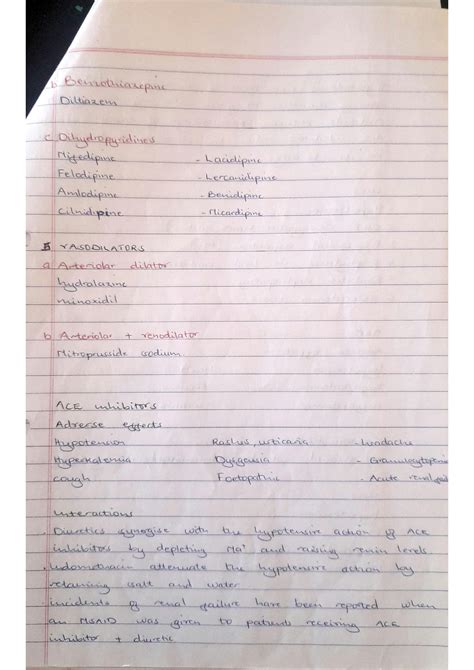 b Benzothiazepine
Diltiazem
c Dihydropyridines
Nifedipine - Lacidipine
Felodipine - Lercanidipine
Amlodipine - Benidipine
Cilnidipine - Nicardipine
5 VASODILATORS
a Arteriolar dilator
hydralazine
minoxidil
b Arteriolar + venodilator
Nitroprusside sodium
ACE inhibitors
Adverse effects
Hypotension Rashes, urticaria - headache
Hyperkalemia Dysgeusia - Granulocytopenia
cough Foetopathic - Acute renal
Interactions
. Diuretics synergise with the hypotensive action of ACE
inhibitors by depleting Na+ and raising renin levels
. Indomethacin attenuate the hypotensive action by
retaining salt and water
incidents of renal failure have been reported when
an NSAID was given to patients receiving ACE
inhibitor + diuretic